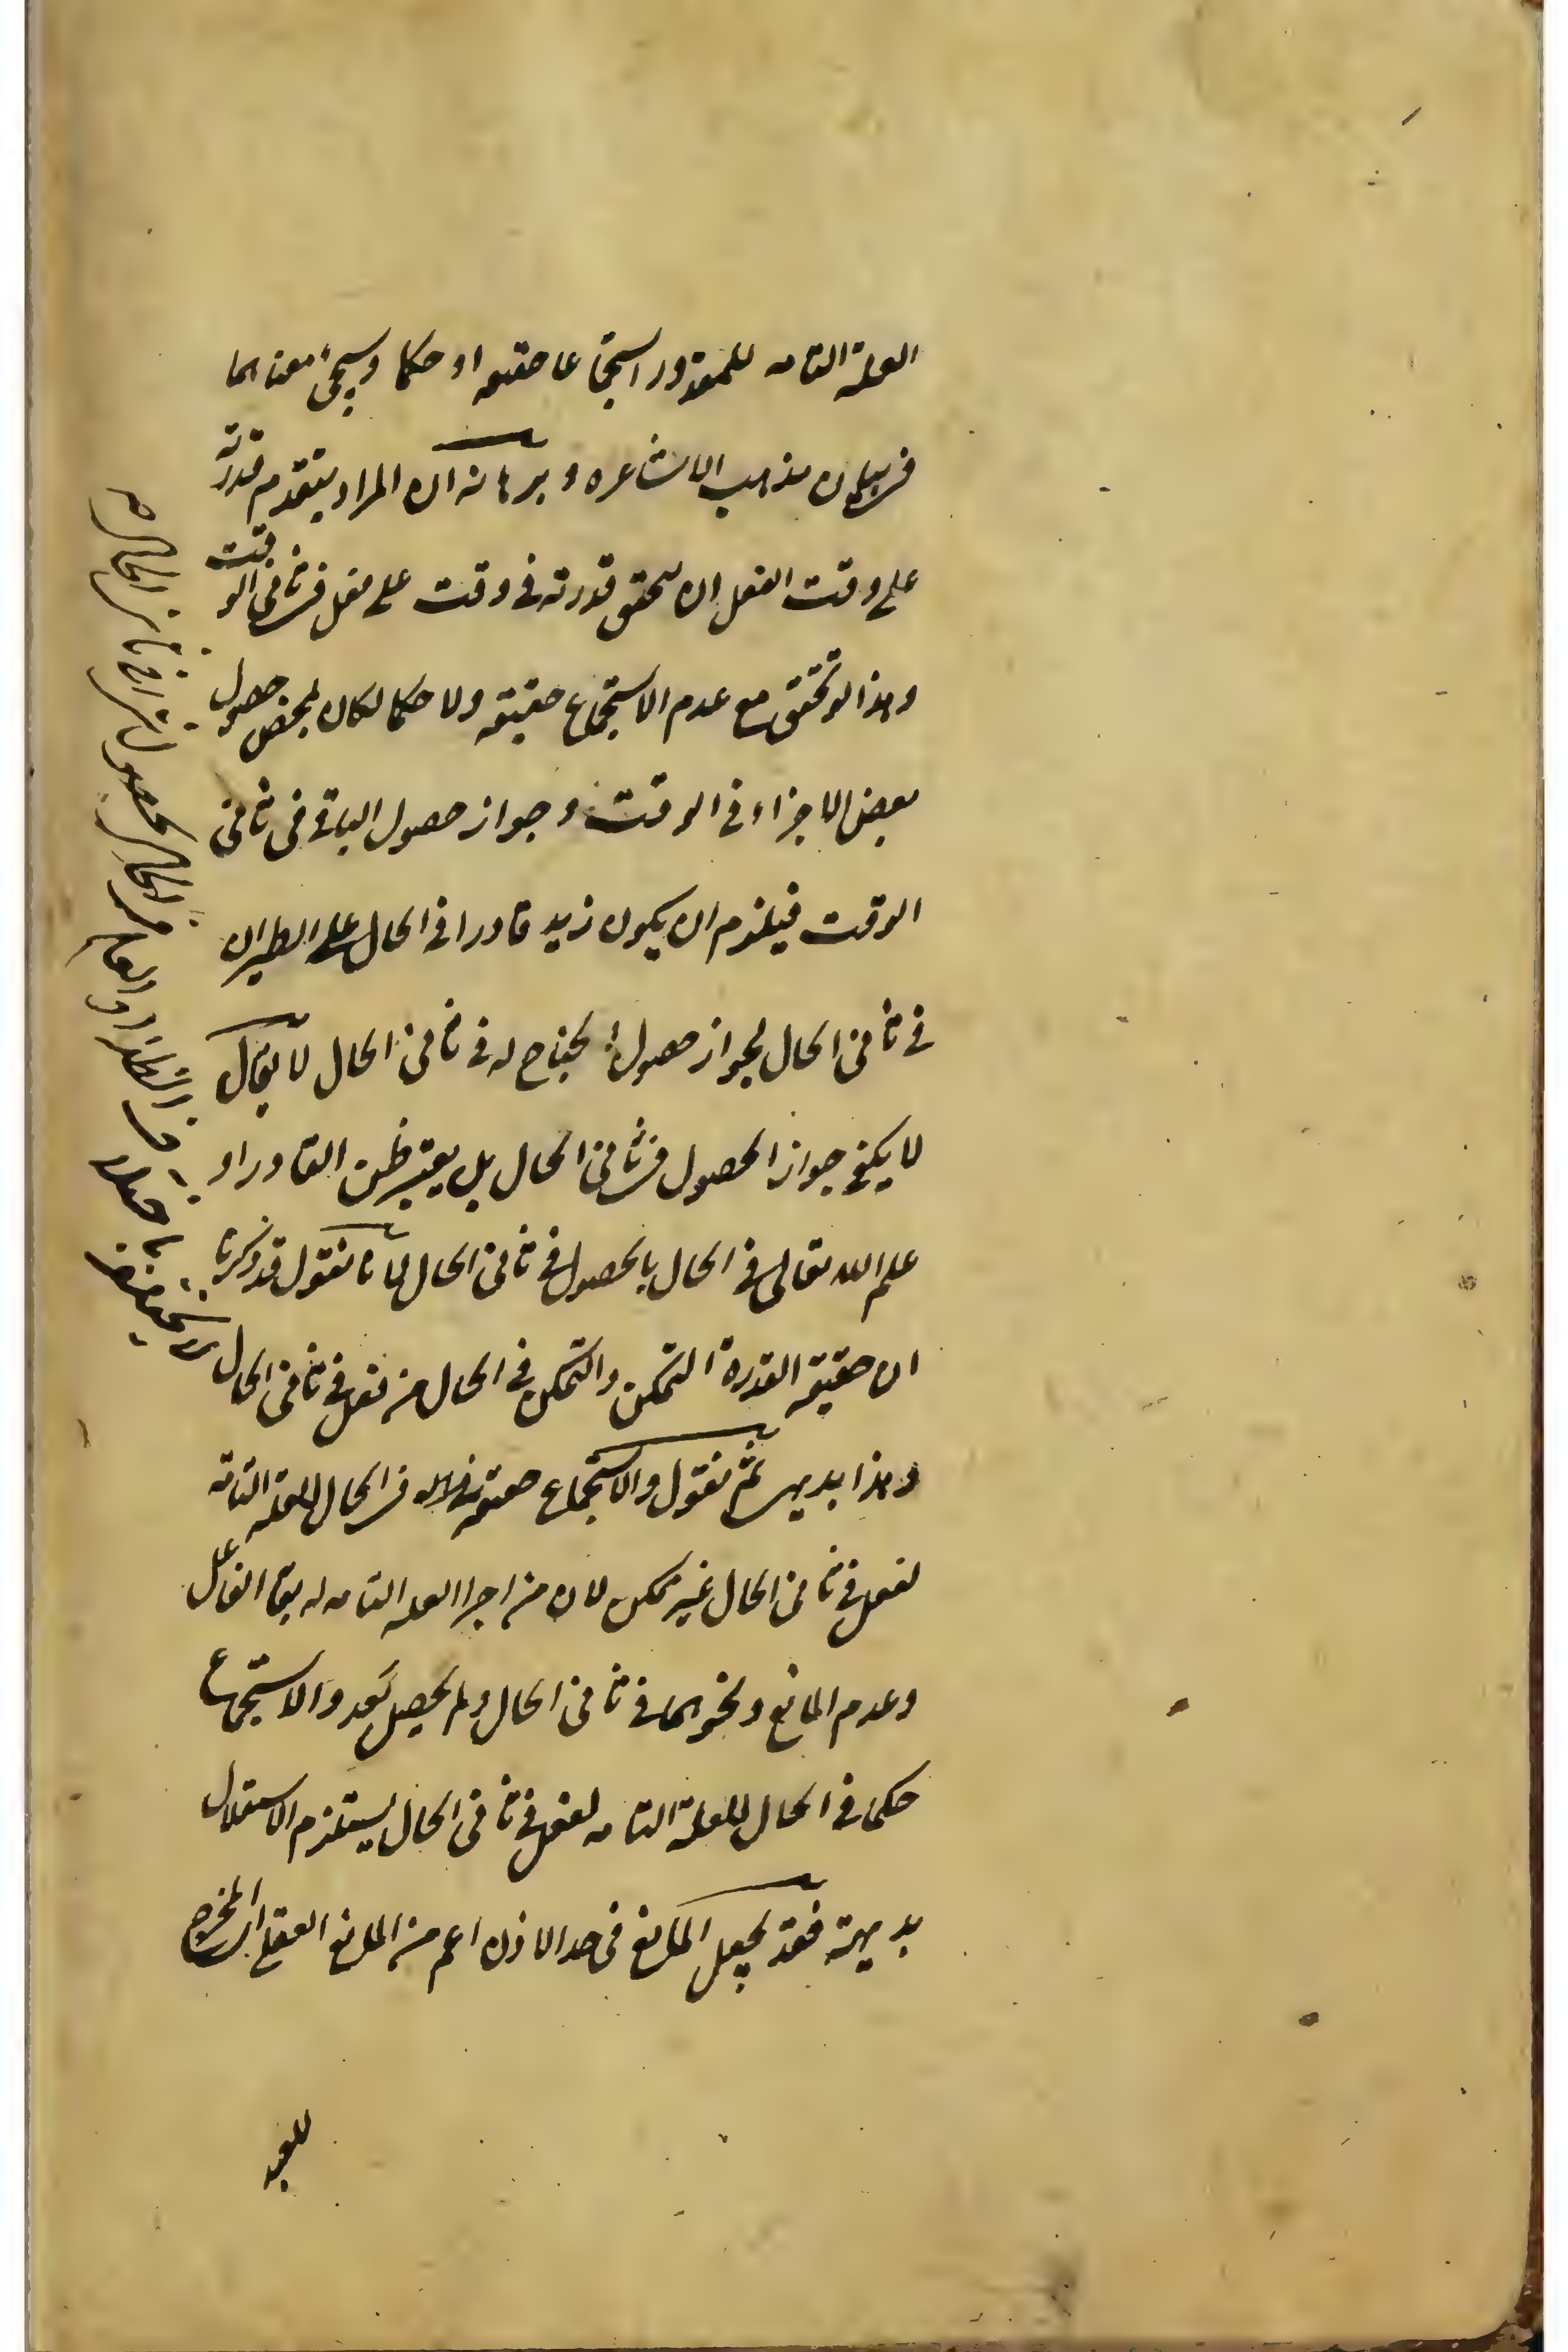 العلة التامه للمقدور استجماعا حقيقه او حكما وسيجئ معناهما
فى بيان مذهب الاشاعره و برهانه ان المراد بتقدم قدرته
على وقت الفعل ان يتحقق قدرته فى وقت على فعل فى ثانى الوقت
وهذا لو تحقق مع عدم الاستجماع حقيقه ولا حكما لكان لمحض حصول
بعض الاجزاء فى الوقت وجواز حصول الباقى فى ثانى
الوقت فيلزم ان يكون زيد قادرا فى الحال على الطيران
فى ثانى الحال لجواز حصول الجناح له فى ثانى الحال لا يقال
لا يكفى جواز الحصول فى ثانى الحال بل يعتبر ظن القادر او
علم الله تعالى فى الحال بالحصول فى ثانى الحال لانا نقول قد ذكرنا
ان حقيقه القدرة التمكن والتمكن فى الحال من فعل فى ثانى الحال
وهذا بديهى ثم نقول والاستجماع حقيقه فى الحال للعلة التامة
لفعل فى ثانى الحال غير ممكن لان من اجزا العله التامه له بقا الفاعل
وعدم المانع ونحوهما فى ثانى الحال ولم يحصل بعد والاستجماع
حكما فى الحال للعلة التامه لفعل فى ثانى الحال يستلزم الاستقلال
بديهة فقد يجعل المانع فى حد الاذن اعم من المانع العقلى المخرج
للعبد